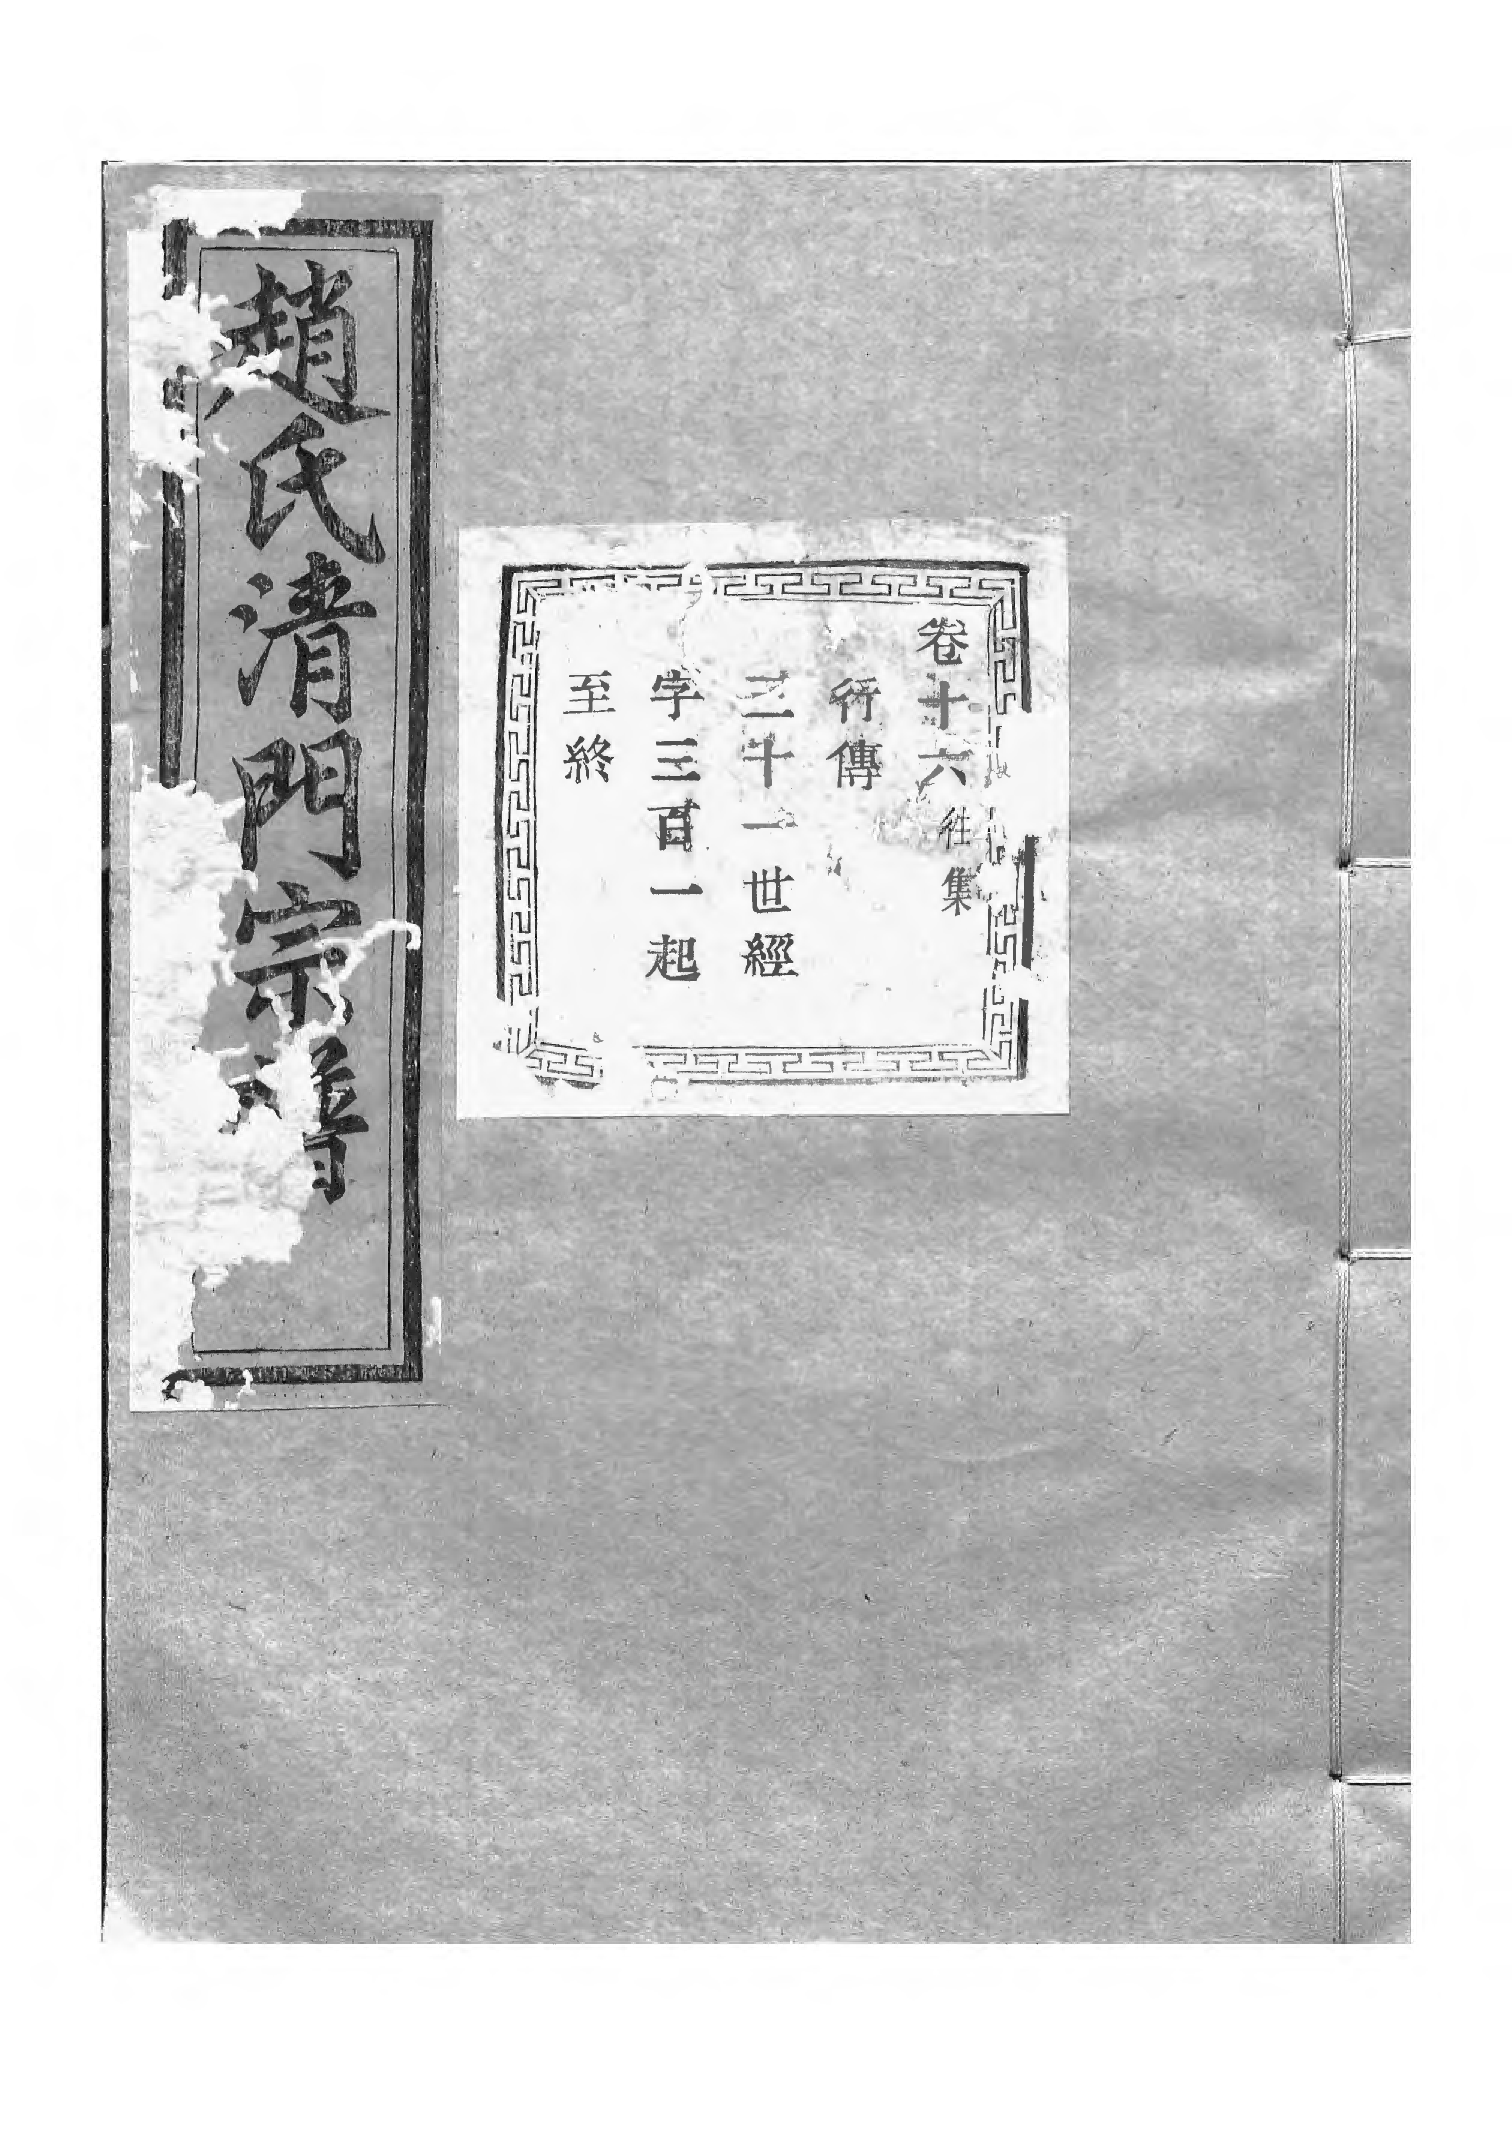 卷十六往集
行傳
三十一世經
字三百一起
至終
趙氏清門宗譜